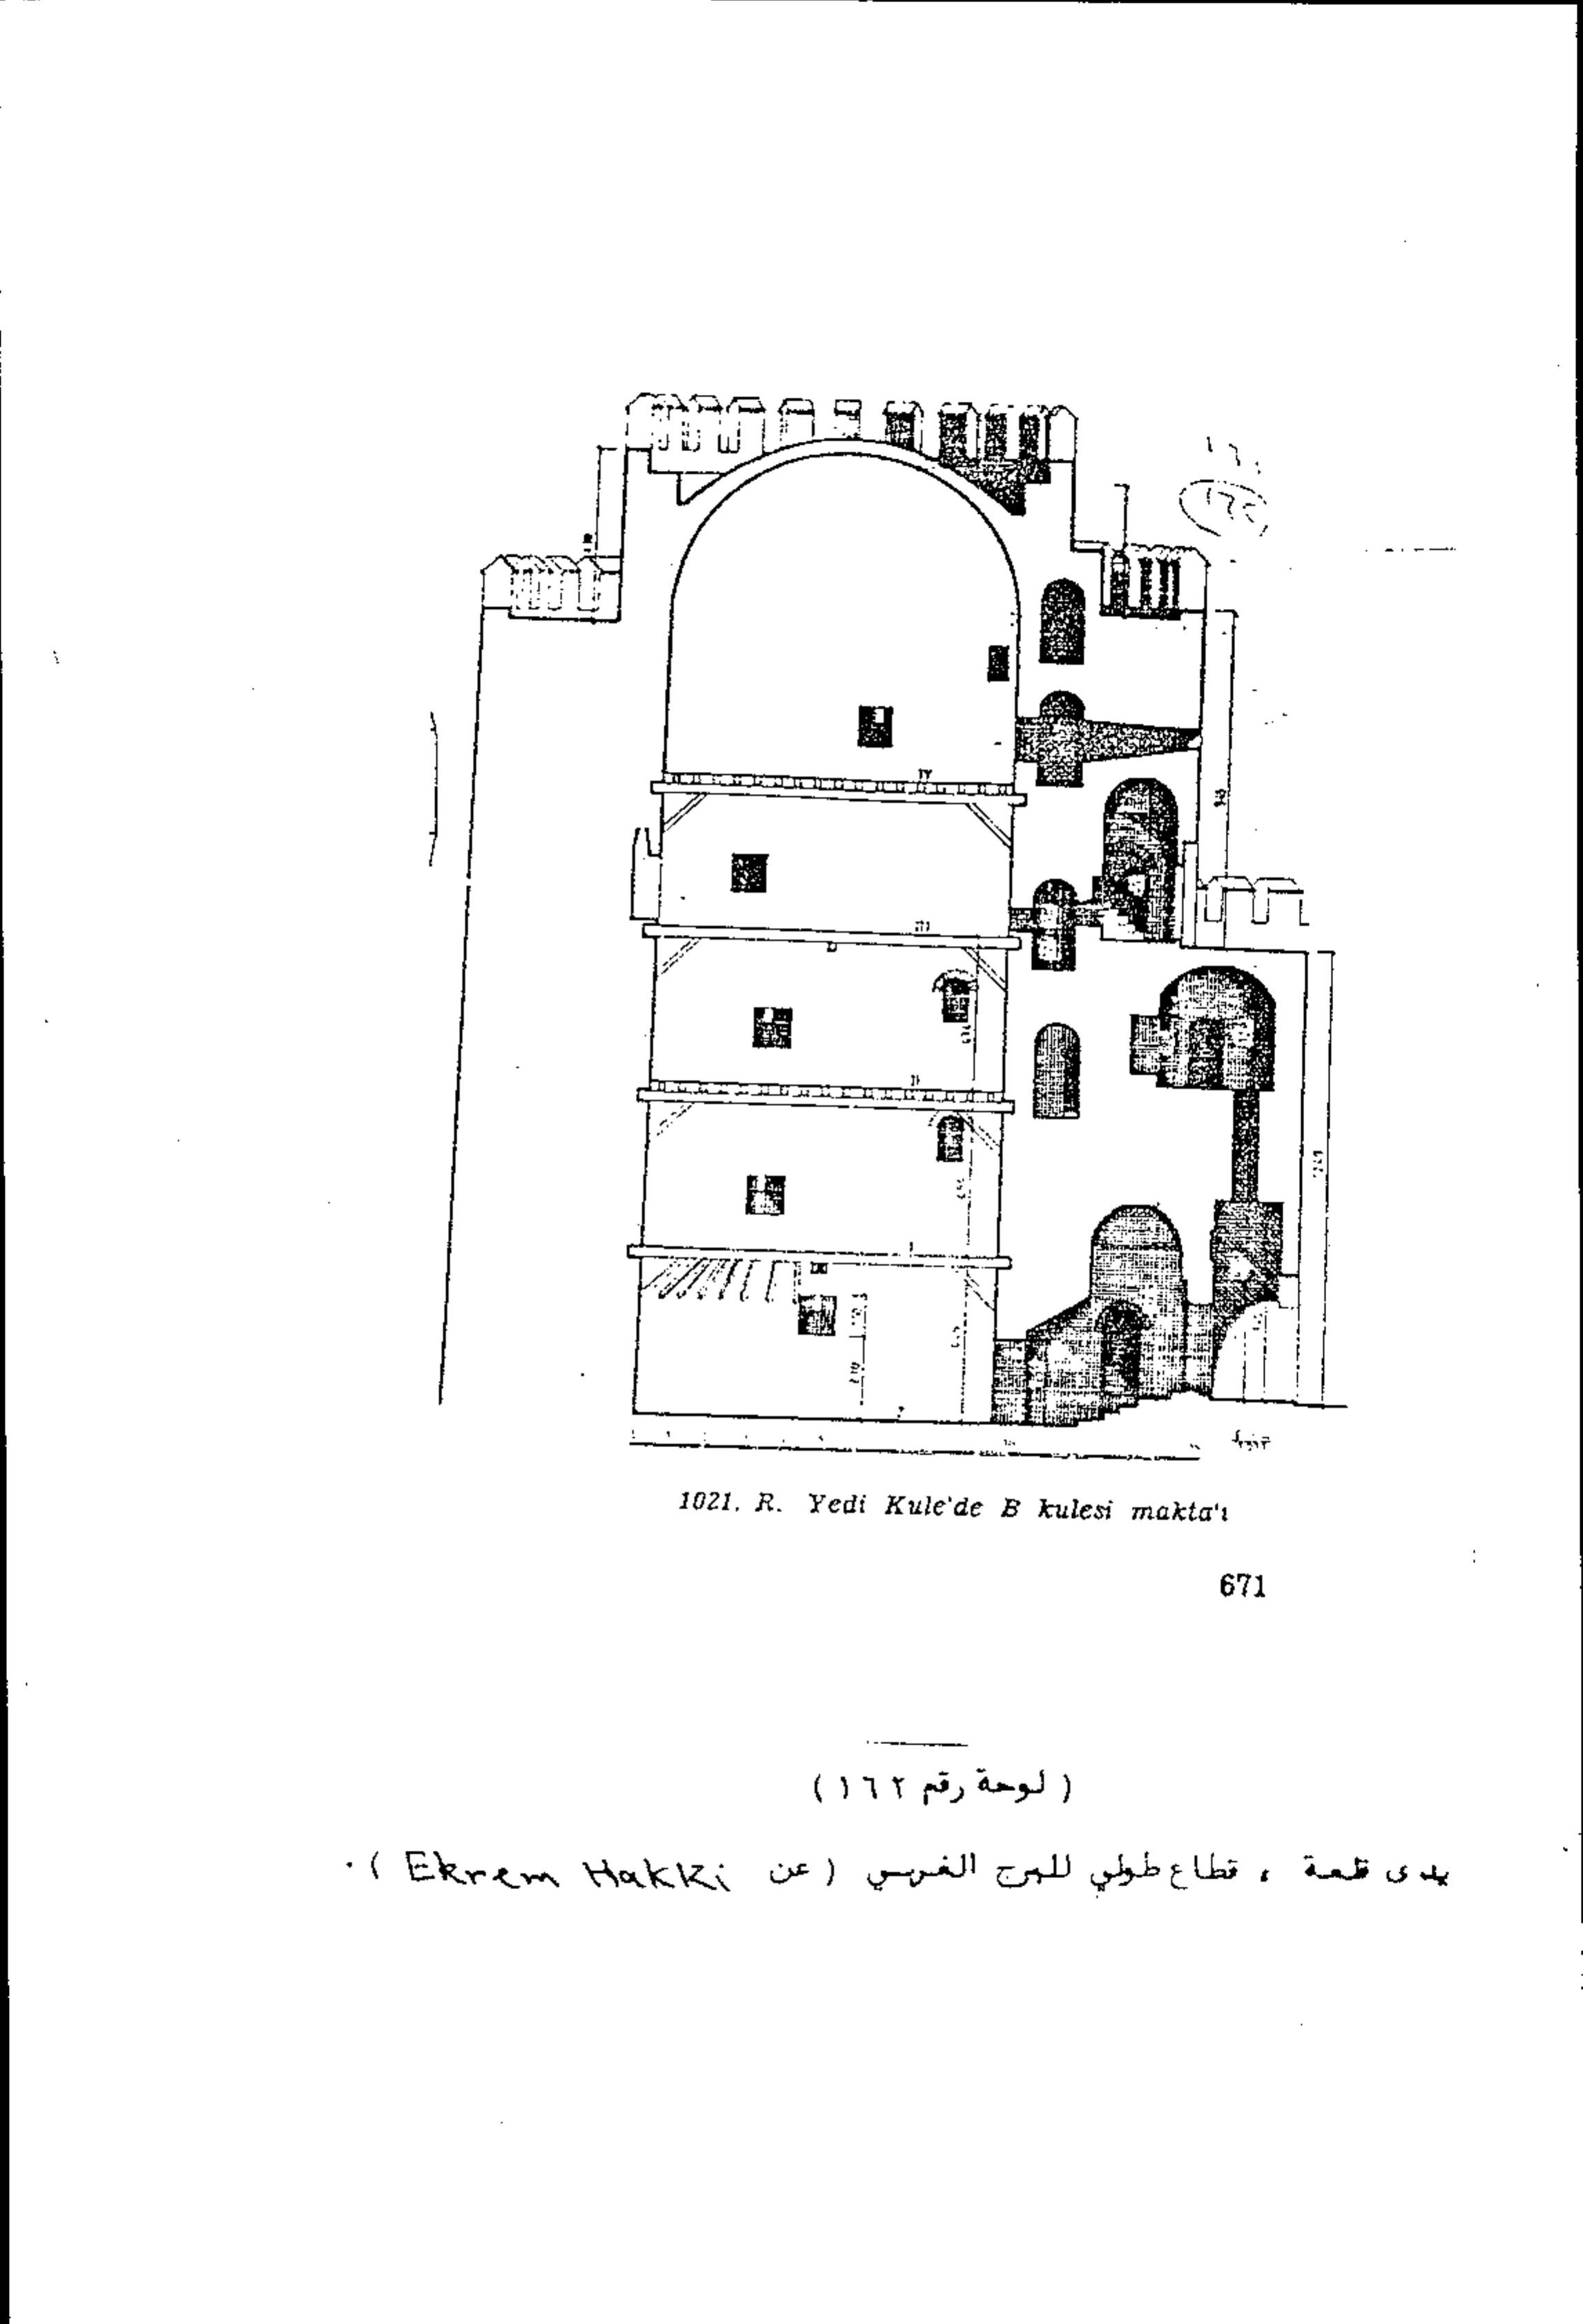 IV
III
II
I
1021. R. Yedi Kule'de B kulesi makta'ı
671
( لوحة رقم ١٦٢ )
يدى قلعة ، قطاع طولي للبرج الغربي ( عن Ekrem Hakki ) .